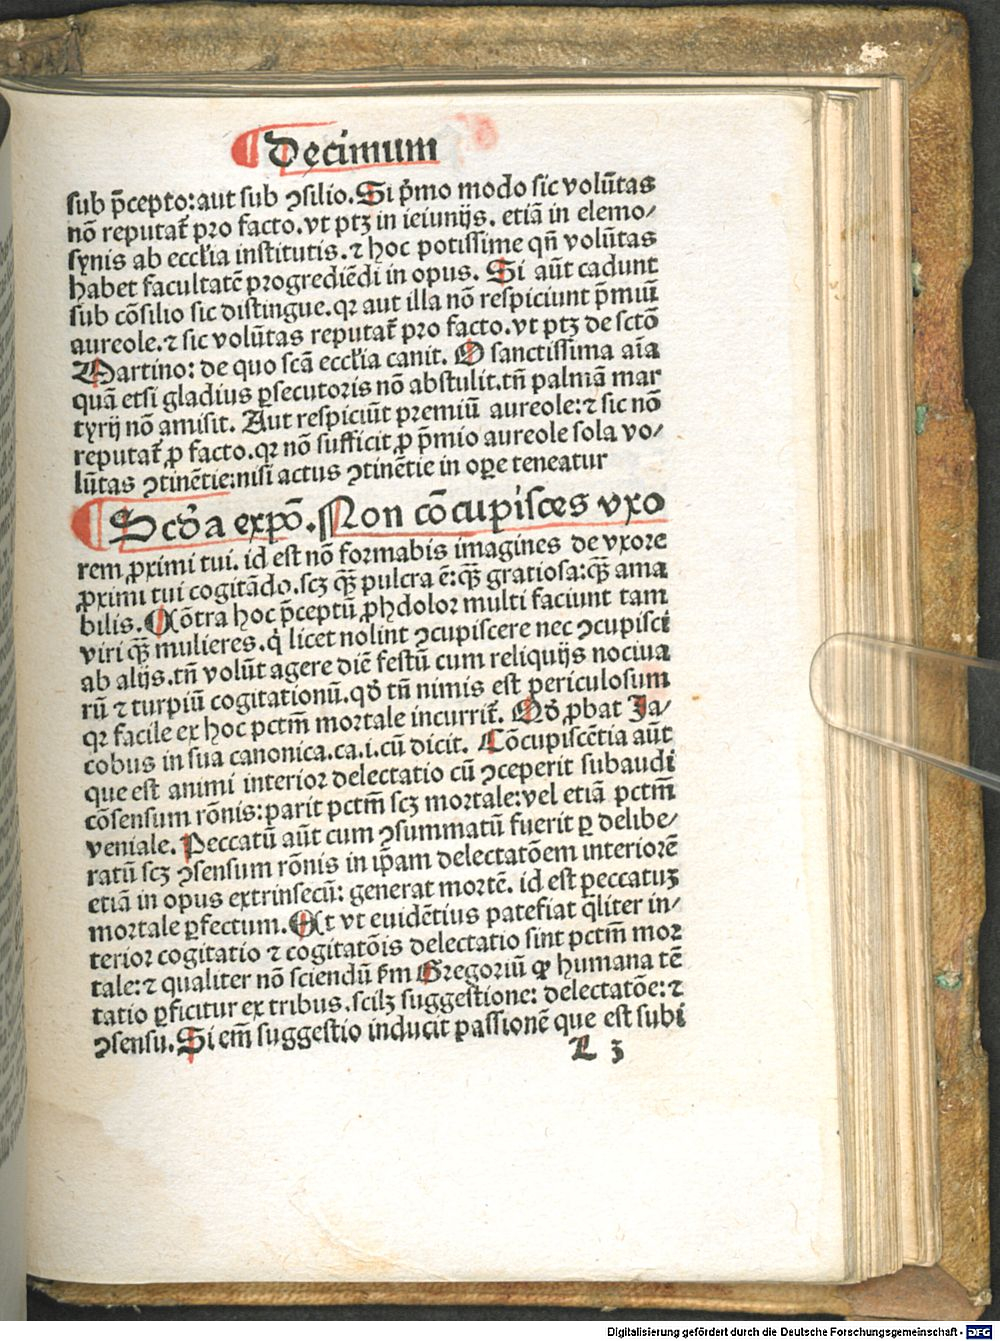 Decimum
sub p̄cepto: aut sub ↄsilio. Si p̄mo modo sic volūtas
nō reputat᷑ pro facto. vt ptꝫ in ieiunijs. etiā in elemo⸗
synis ab eccl̄ia institutis. ⁊ hoc potissime qn̄ volūtas
habet facultatē progrediēdi in opus. Si aūt cadunt
sub cōsilio sic distingue. qꝛ aut illa nō respiciunt p̄miū
aureole. ⁊ sic volūtas reputat᷑ pro facto. vt ptꝫ de sctō
Martino: de quo scā eccl̄ia canit. O sanctissima aīa
quā etsi gladius ꝑsecutoris nō abstulit. tn̄ palmā mar
tyrij nō amisit. Aut respiciūt premiū aureole: ⁊ sic nō
reputat᷑ ꝓ facto. qꝛ nō sufficit ꝓ p̄mio aureole sola vo⸗
lūtas ↄtinētie: nisi actus ↄtinētie in oꝑe teneatur
Scd̄a expō. Non cōcupisces vxo
rem ꝓximi tui. id est nō formabis imagines de vxore
ꝓximi tui cogitādo. scꝫ qꝫ̄ pulcra ē: qꝫ̄ gratiosa: qꝫ̄ ama
bilis. Cōtra hoc p̄ceptū ꝓhdolor multi faciunt tam
viri qꝫ̄ mulieres. q̇ licet nolint ↄcupiscere nec ↄcupisci
ab alijs. tn̄ volūt agere diē festū cum reliquijs nociua
rū ⁊ turpiū cogitationū. qd̄ tn̄ nimis est periculosum
qꝛ facile ex hoc pctm̄ mortale incurrit᷑. Qd̄ ꝓbat Ja⸗
cobus in sua canonica. ca. i. cū dicit. Cōcupiscētia aūt
que est animi interior delectatio cū ↄceperit subaudi
cōsensum rōnis: parit pctm̄ scꝫ mortale: vel etiā pctm̄
veniale. Peccatū aūt cum ↄsummatū fuerit ꝑ delibe⸗
ratū scꝫ ↄsensum rōnis in ip̄am delectatōem interiorē
etiā in opus extrinsecū: generat mortē. id est peccatuꝫ
mortale ꝑfectum. Et vt euidētius patefiat q̄liter in⸗
terior cogitatio ⁊ cogitatōis delectatio sint pctm̄ mor
tale: ⁊ qualiter nō sciendū ẜm Gregoriū ꝙ humana tē
tatio ꝑficitur ex tribus. scilꝫ suggestione: delectatōe: ⁊
ↄsensu. Si em̄ suggestio inducit passionē que est subi
L 3
Digitalisierung gefördert durch die Deutsche Forschungsgemeinschaft - DFG